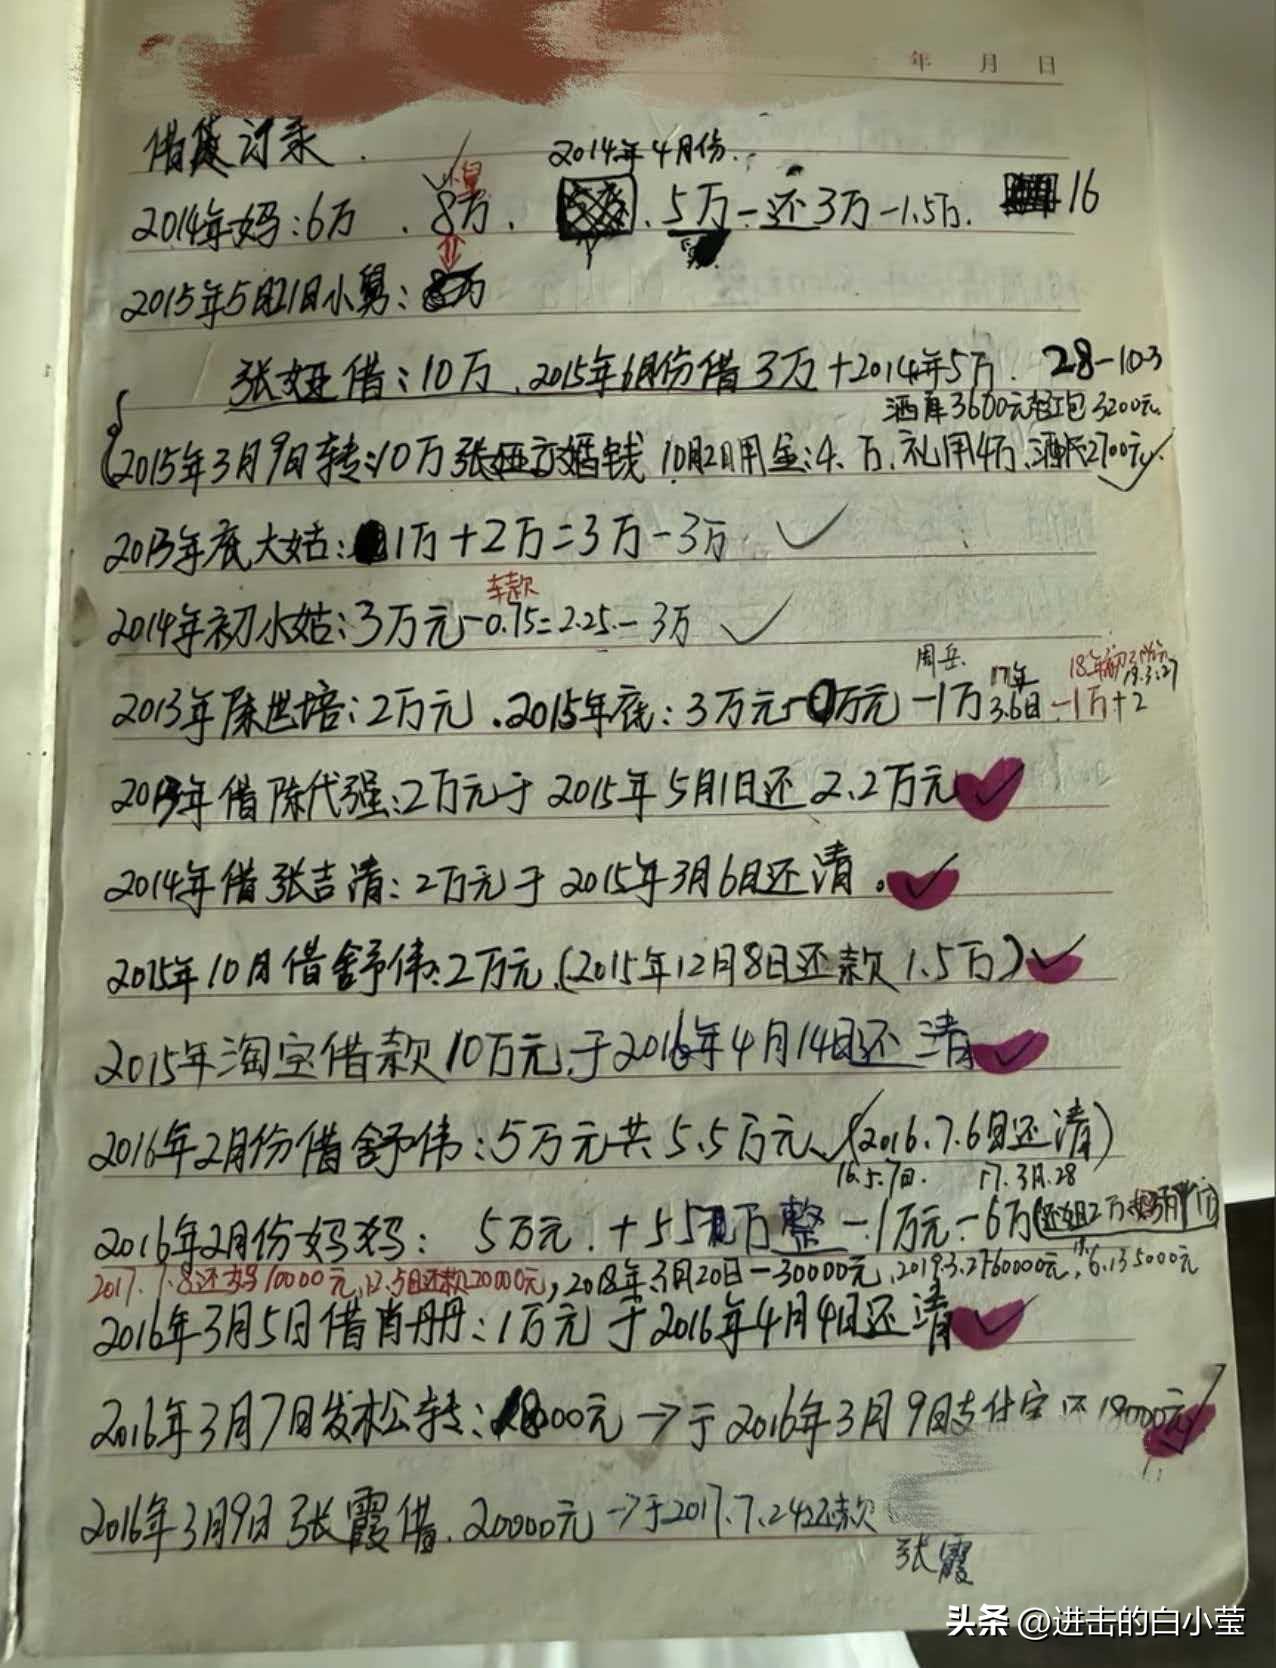 年 月 日
借贷订录.
2014年4月份.
2014年妈:6万 . 8万. 5万-还3万-1.5万. 16
小舅
2015年5月21日小舅:
张娅借:10万.2015年6月份借3万+2014年5万. 28-10-3
酒席3600元 红包3200元.
2015年3月9日转:10万张娅 婚钱 10月2日用金:4.万.礼用4万. 2700元.
2013年底大姑:1万+2万=3万-3万
车款
2014年初小姑:3万元-0.75=2.25-3万
周岳. 17年 18年初
2013年陈世培:2万元.2015年底:3万元- 万元-1万 3.6日-1万+2
2013年借陈代强:2万元于2015年5月1日还2.2万元
2014年借张吉清:2万元于2015年3月6日还清.
2015年10月借舒伟:2万元.(2015年12月8日还款1.5万)
2015年淘宝借款10万元于2016年4月14日还清
2016年2月份借舒伟:5万元共5.5万元.(2016.7.6日还清)
16.5.7日. 17.3月.28
2016年2月份妈妈: 5万元.+5 万整-1万元-6万(还姐2万
2017.7.8还妈10000元,12.5日还款20000元,2018年3月20日-30000元,2019.3.27 60000元, 6.13 5000元
2016年3月5日借肖丹丹:1万元于2016年4月4日还清
2016年3月7日发松转:18000元→于2016年3月9日支付宝还18000元
2016年3月9日张霞借.20000元→于2017.7.24还款
张霞
头条 @进击的白小莹